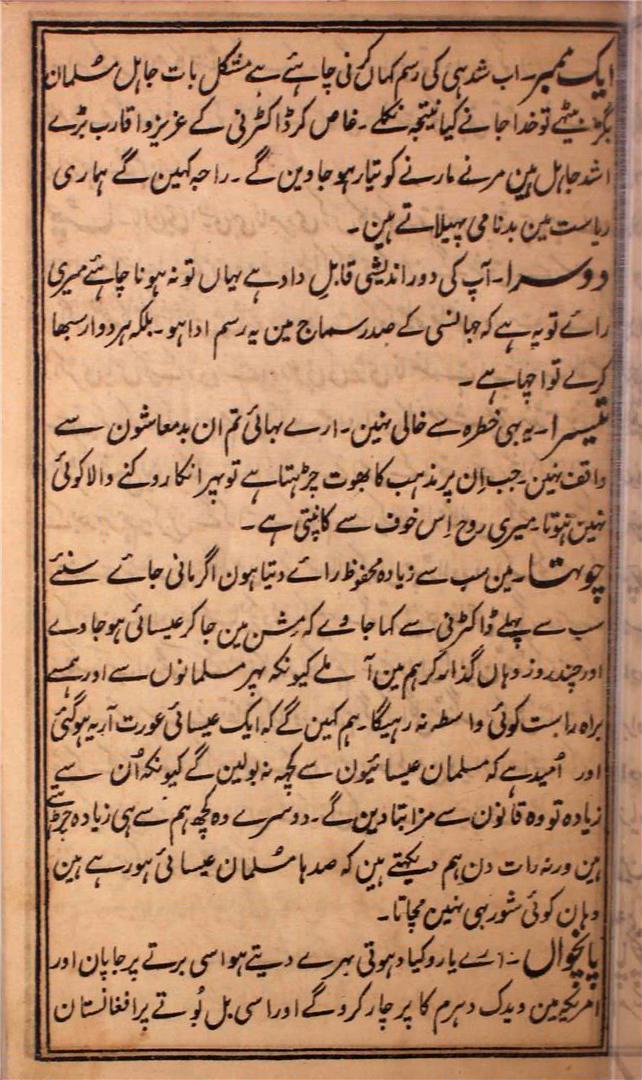 ایک ممبر۔ اب شدہی کی رسم کہاں کرنی چاہئے ہے مشکل بات جاہل مسلمان
بگڑ بیٹھے تو خدا جانے کیا نتیجہ نکلے۔ خاص کر ڈاکٹرنی کے عزیز و اقارب بڑے
اشد جاہل ہین مرنے مارنے کو تیار ہو جاوین گے۔ راجہ کہین گے ہماری
ریاست مین بدنامی پہیلاتے ہین۔
دوسرا۔ آپ کی دور اندیشی قابل داد ہے یہاں تو نہ ہونا چاہئے میری
رائے تو یہ ہے کہ جہانسی کے صدر سماج مین یہ رسم ادا ہو۔ بلکہ ہردوار سبھا
کرے تو اچہا ہے۔
تیسرا۔ یہ بہی خطرہ سے خالی نہین۔ ارے بہائی تم ان بدمعاشون سے
واقف نہین۔ جب اِن پر مذہب کا بھوت چڑہتا ہے تو پہر انکا روکنے والا کوئی
نہین ہوتا۔ میری روح اِس خوف سے کانپتی ہے۔
چوہتا۔ مین سب سے زیادہ محفوظ رائے دیتا ہون اگر مانی جائے سنئے
سب سے پہلے ڈاکٹرنی سے کہا جاوے کہ مِشن مین جا کر عیسائی ہو جاوے
اور چند روز وہاں گذار کر ہم مین آ ملے کیونکہ پہر مسلمانوں سے اور ہمسے
براہ راست کوئی واسطہ نہ رہیگا۔ ہم کہین گے کہ ایک عیسائی عورت آریہ ہو گئی
اور اُمید ہے کہ مسلمان عیسائیون سے کچہ نہ بولین گے کیونکہ اُن سے
زیادہ تو وہ قانون سے مزا بتا دین گے۔ دوسرے وہ کچھ ہم سے ہی زیادہ چڑہتے
ہین ورنہ رات دن ہم دیکہتے ہین کہ صدہا مسلمان عیسائی ہو رہے ہین
وہان کوئی شور بہی نہین مچاتا۔
پانچواں۔ اے یارو کیا دہوتی بہرے دیتے ہو اسی برتے پر جاپان اور
امریکہ مین ویدک دہرم کا پرچار کرو گے اور اسی بل بُوتے پر افغانستان